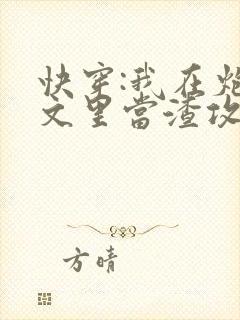 快穿:我在炮
文里當渣攻
方晴